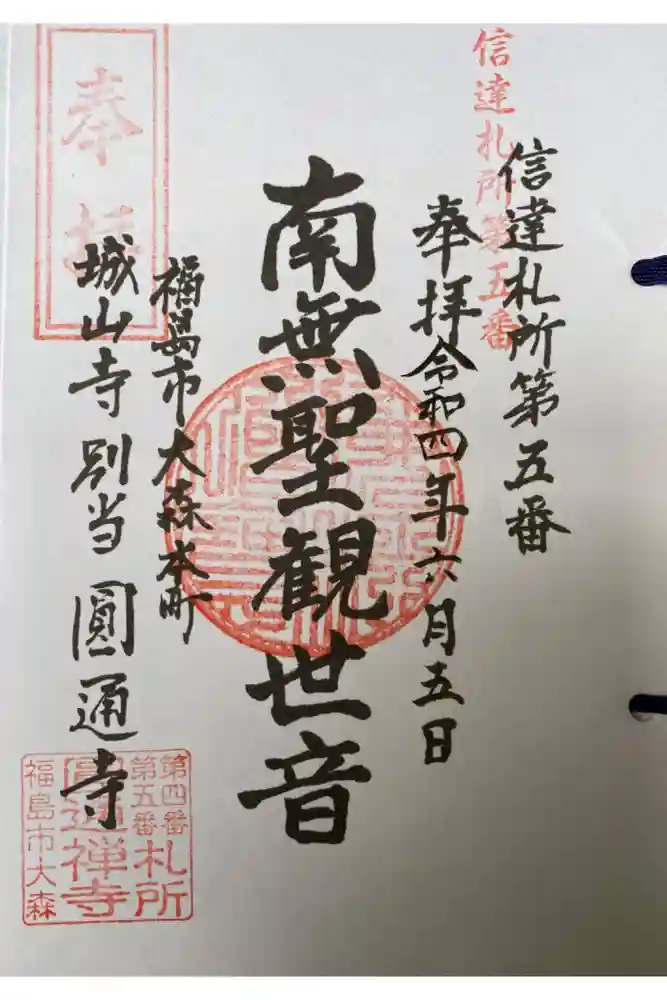 信達札所第五番
信達札所第五番
奉拝令和四年六月五日
南無聖観世音
福島市大森本町
城山寺別当圓通寺
奉拝
第四番
第五番
札所
圓通禅寺
福島市大森